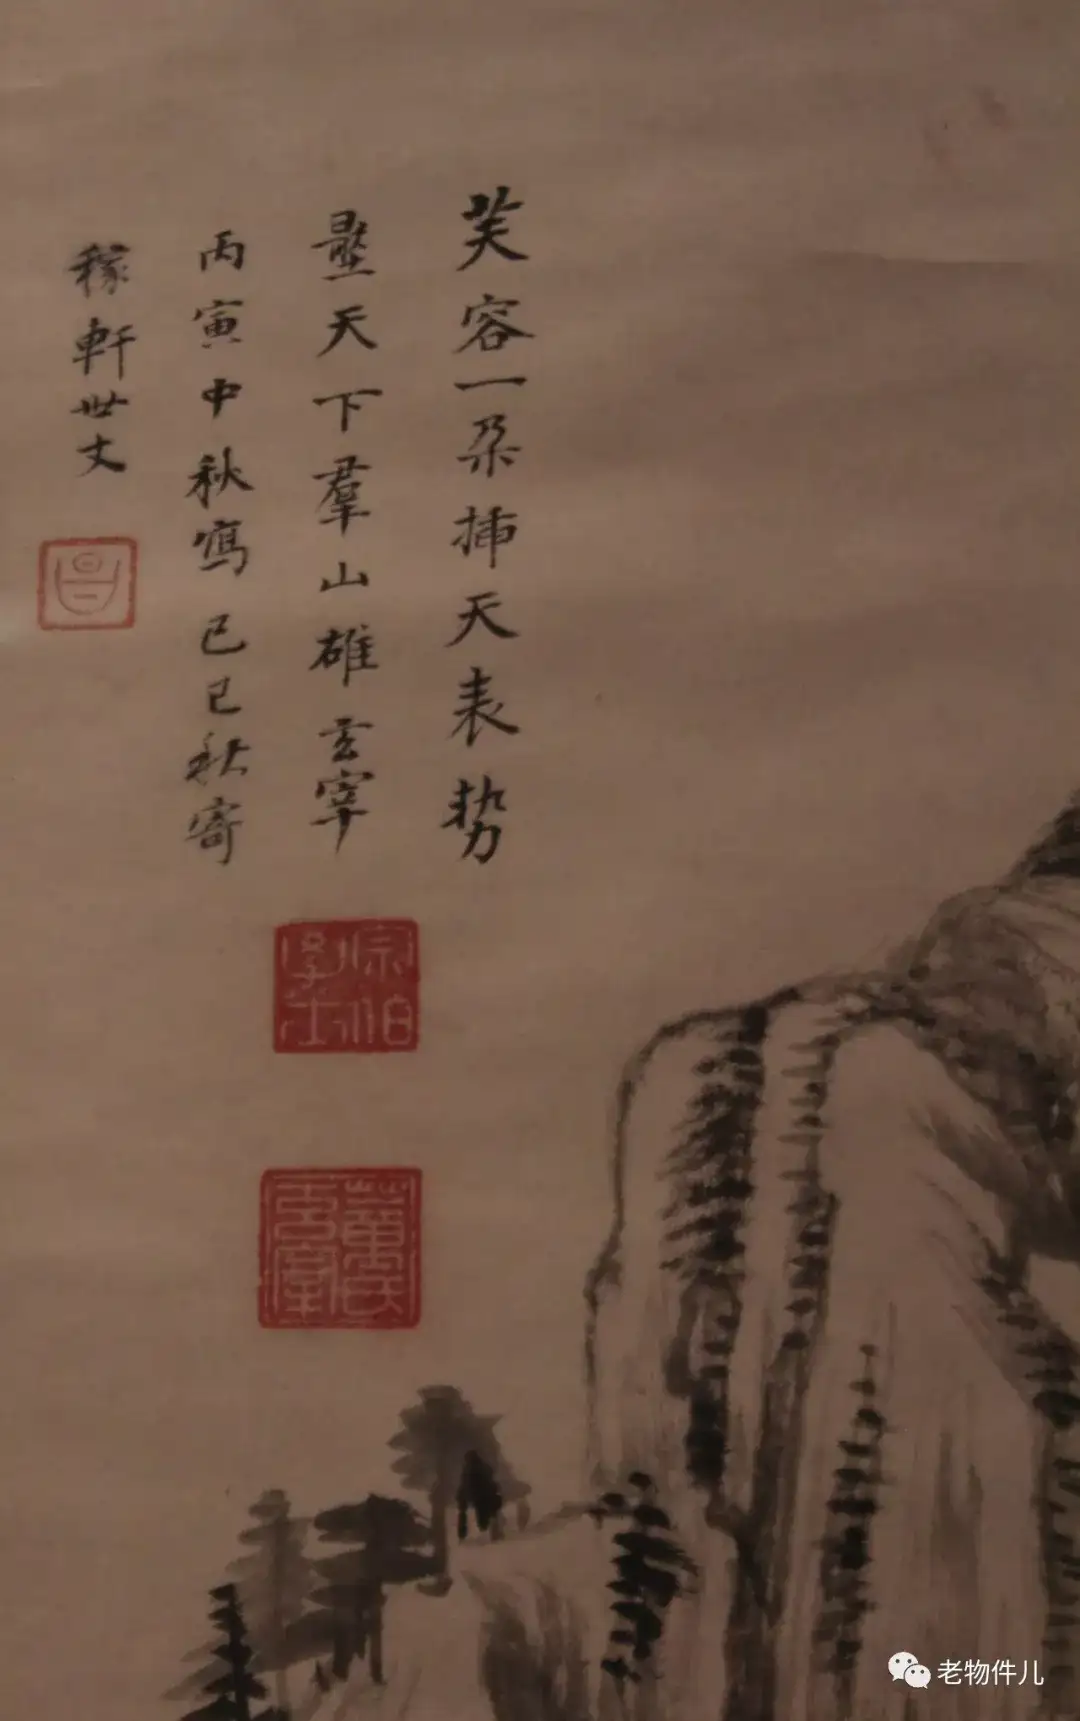 芙容一朶揷天表势
壓天下羣山雄玄宰
丙寅中秋寫己巳秋寄
稼軒世丈
宗伯學士
董氏玄宰
老物件儿